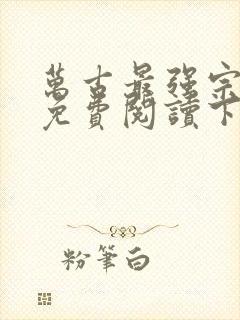 萬古最強宗
免費閱讀下
粉筆白